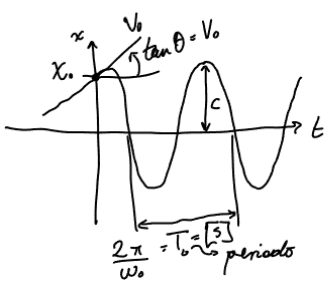 V₀
x
tan θ = V₀
X₀
C
t
2π/ω₀ = T₀ = [s]
periodo